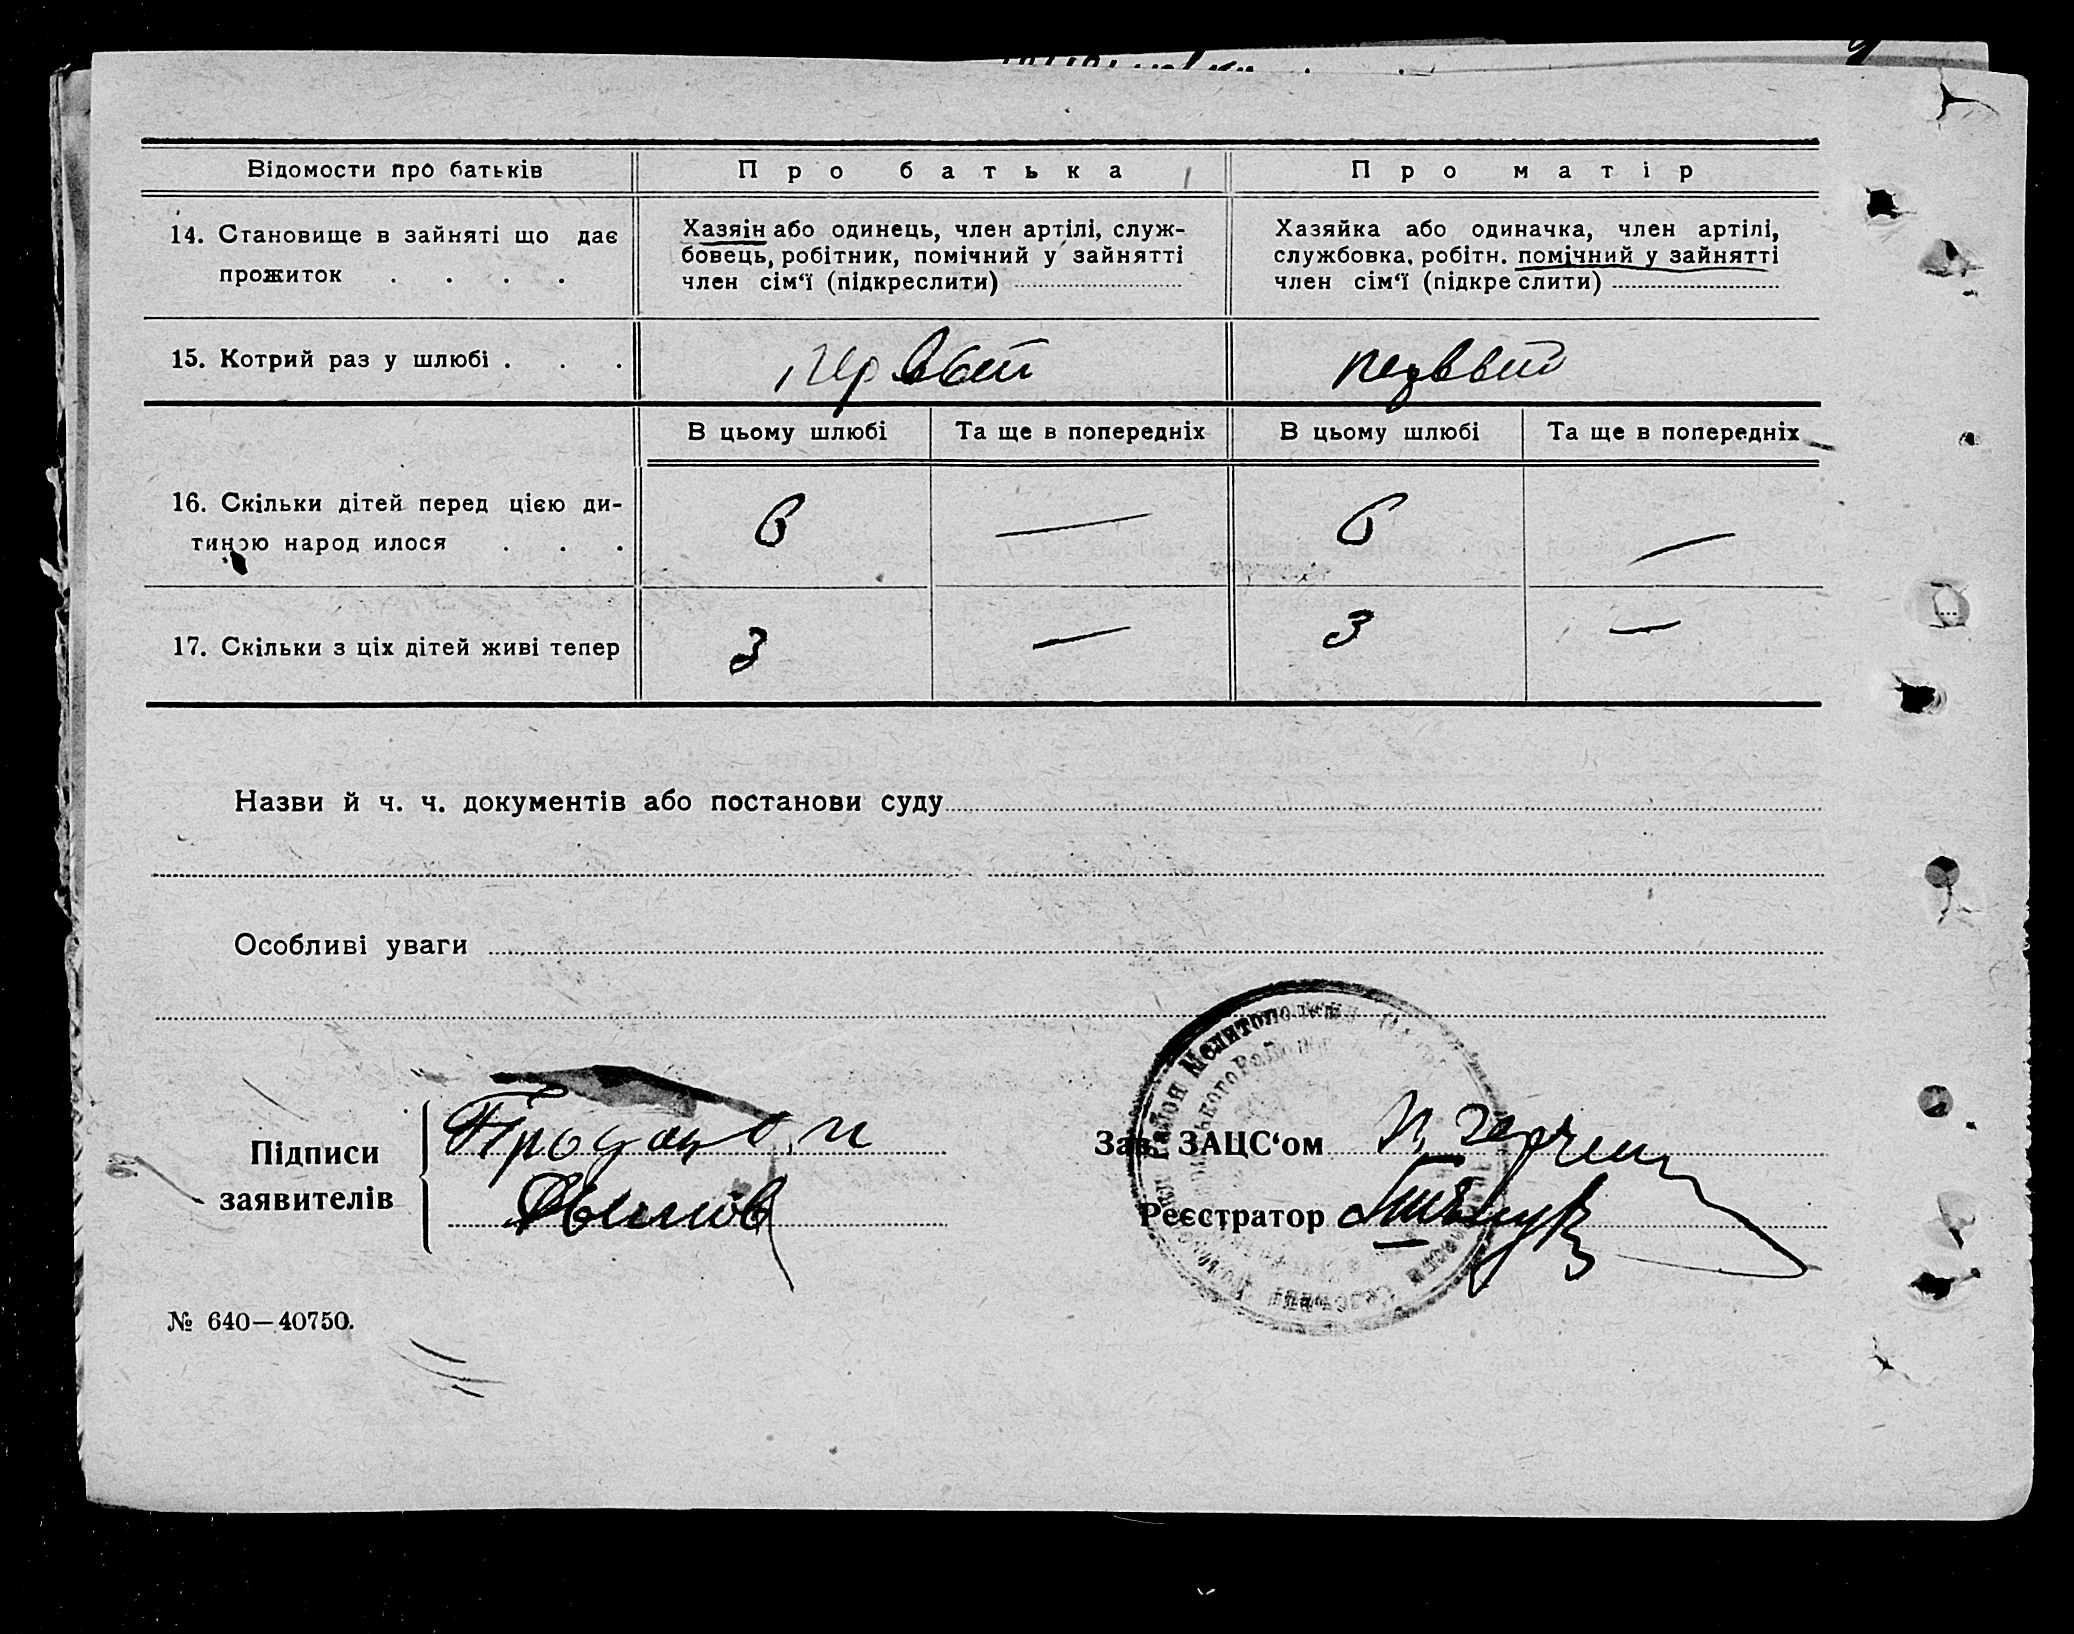 Відомости про батьків
Про батька
Про матір
14. Становище в зайняті що дає
прожиток . . . .
Хазяін або одинець, член артілі, служ-
бовець, робітник, помічний у зайнятті
член сім‘ї (підкреслити)
Хазяйка або одиначка, член артілі,
службовка, робітн. помічний у зайнятті
член сім‘ї (підкреслити)
15. Котрий раз у шлюбі . . .
первый
первый
В цьому шлюбі
Та ще в попередніх
В цьому шлюбі
Та ще в попередніх
16. Скільки дітей перед цією ди-
тиною народилося . . .
6
—
6
—
17. Скільки з ціх дітей живі тепер
3
—
3
—
Назви й ч. ч. документів або постанови суду
Особливі уваги
Район Мелитополь
Підписи
заявителів
Зав. ЗАЦС‘ом
Реєстратор
№ 640—40750.